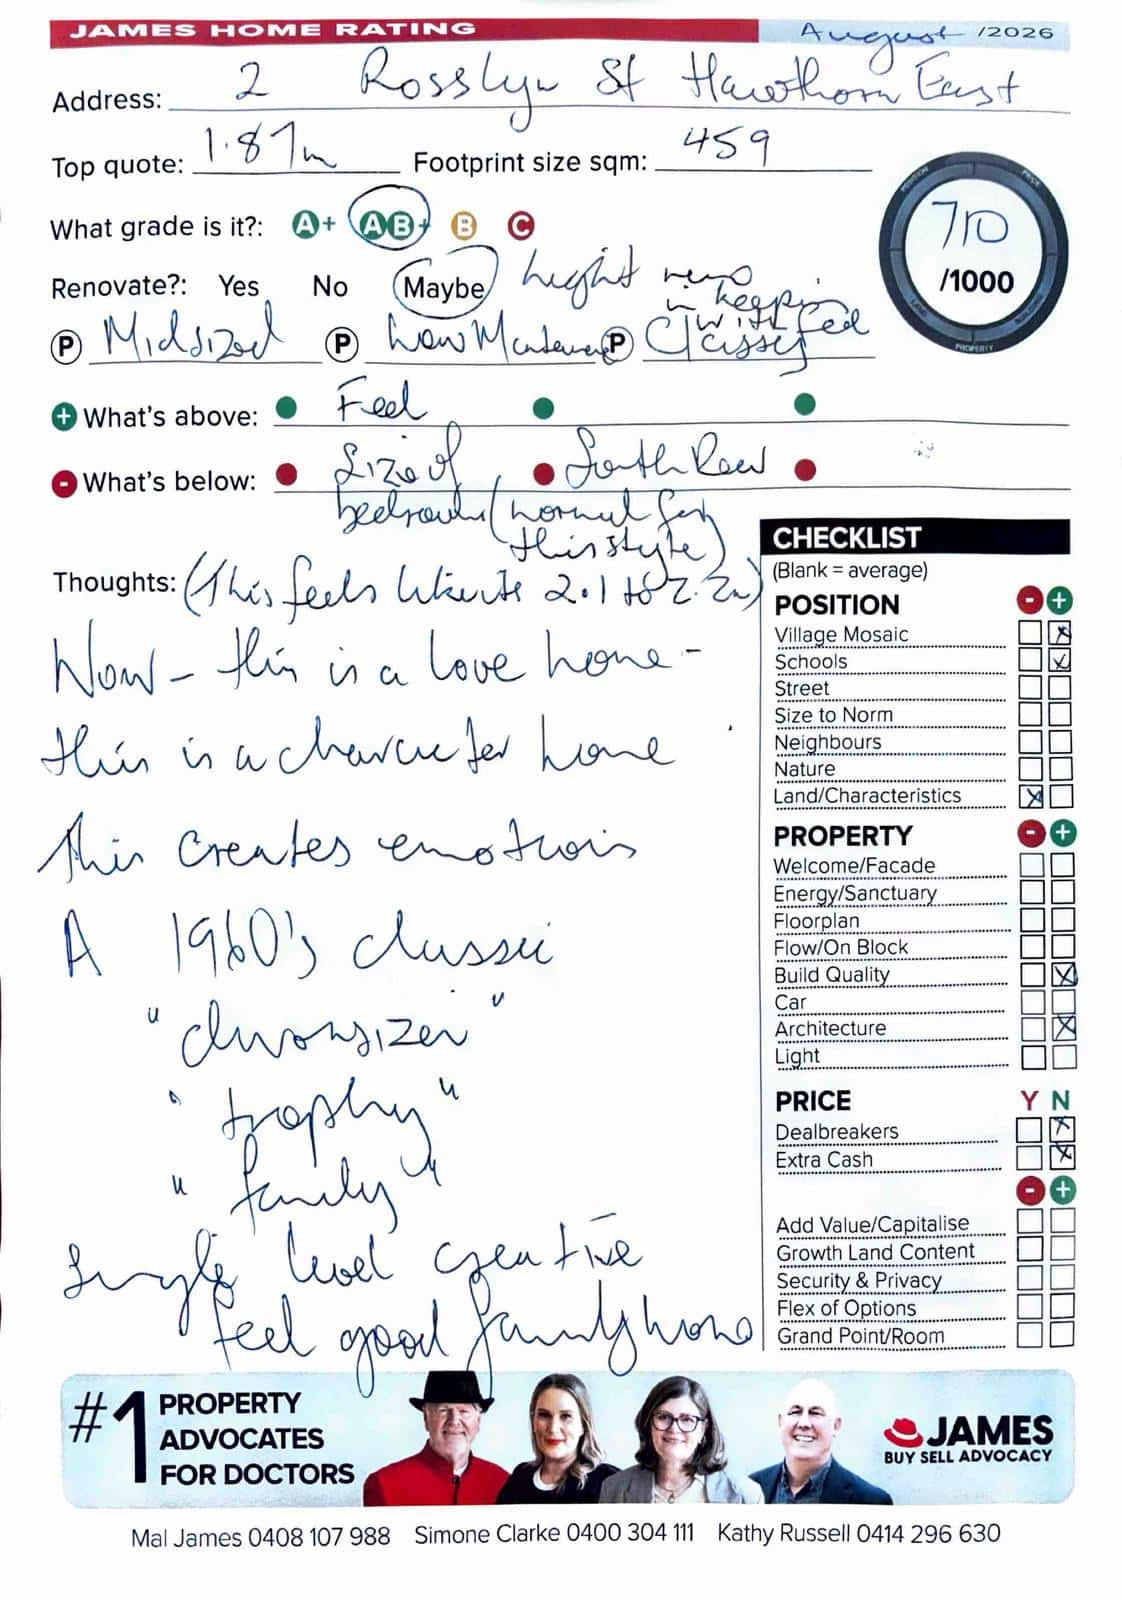 JAMES HOME RATING August /2026
Address: 2 Rosslyn St Hawthorn East
Top quote: 1.87m Footprint size sqm: 459
What grade is it?: A+ AB+ B C
710
/1000
POSITION PRICE LAND BUILDING PROPERTY
Renovate?: Yes No Maybe light reno
in keeping
with feel
P Midsized P Low P Classy
+ What's above: Feel
- What's below: Size of South Rear
bedrooms (normal for
this style)
Thoughts: (This feels like its 2.1 to 2.2m)
Wow - this is a love home -
this is a character home
this creates emotion
A 1960's classic
"downsizer"
"trophy"
"family"
Single level creative
feel good family home
CHECKLIST
(Blank = average)
POSITION - +
Village Mosaic x
Schools x
Street
Size to Norm
Neighbours
Nature
Land/Characteristics x
PROPERTY - +
Welcome/Facade
Energy/Sanctuary
Floorplan
Flow/On Block
Build Quality x
Car
Architecture x
Light
PRICE Y N
Dealbreakers x
Extra Cash x
- +
Add Value/Capitalise
Growth Land Content
Security & Privacy
Flex of Options
Grand Point/Room
#1 PROPERTY
ADVOCATES
FOR DOCTORS
JAMES
BUY SELL ADVOCACY
Mal James 0408 107 988 Simone Clarke 0400 304 111 Kathy Russell 0414 296 630